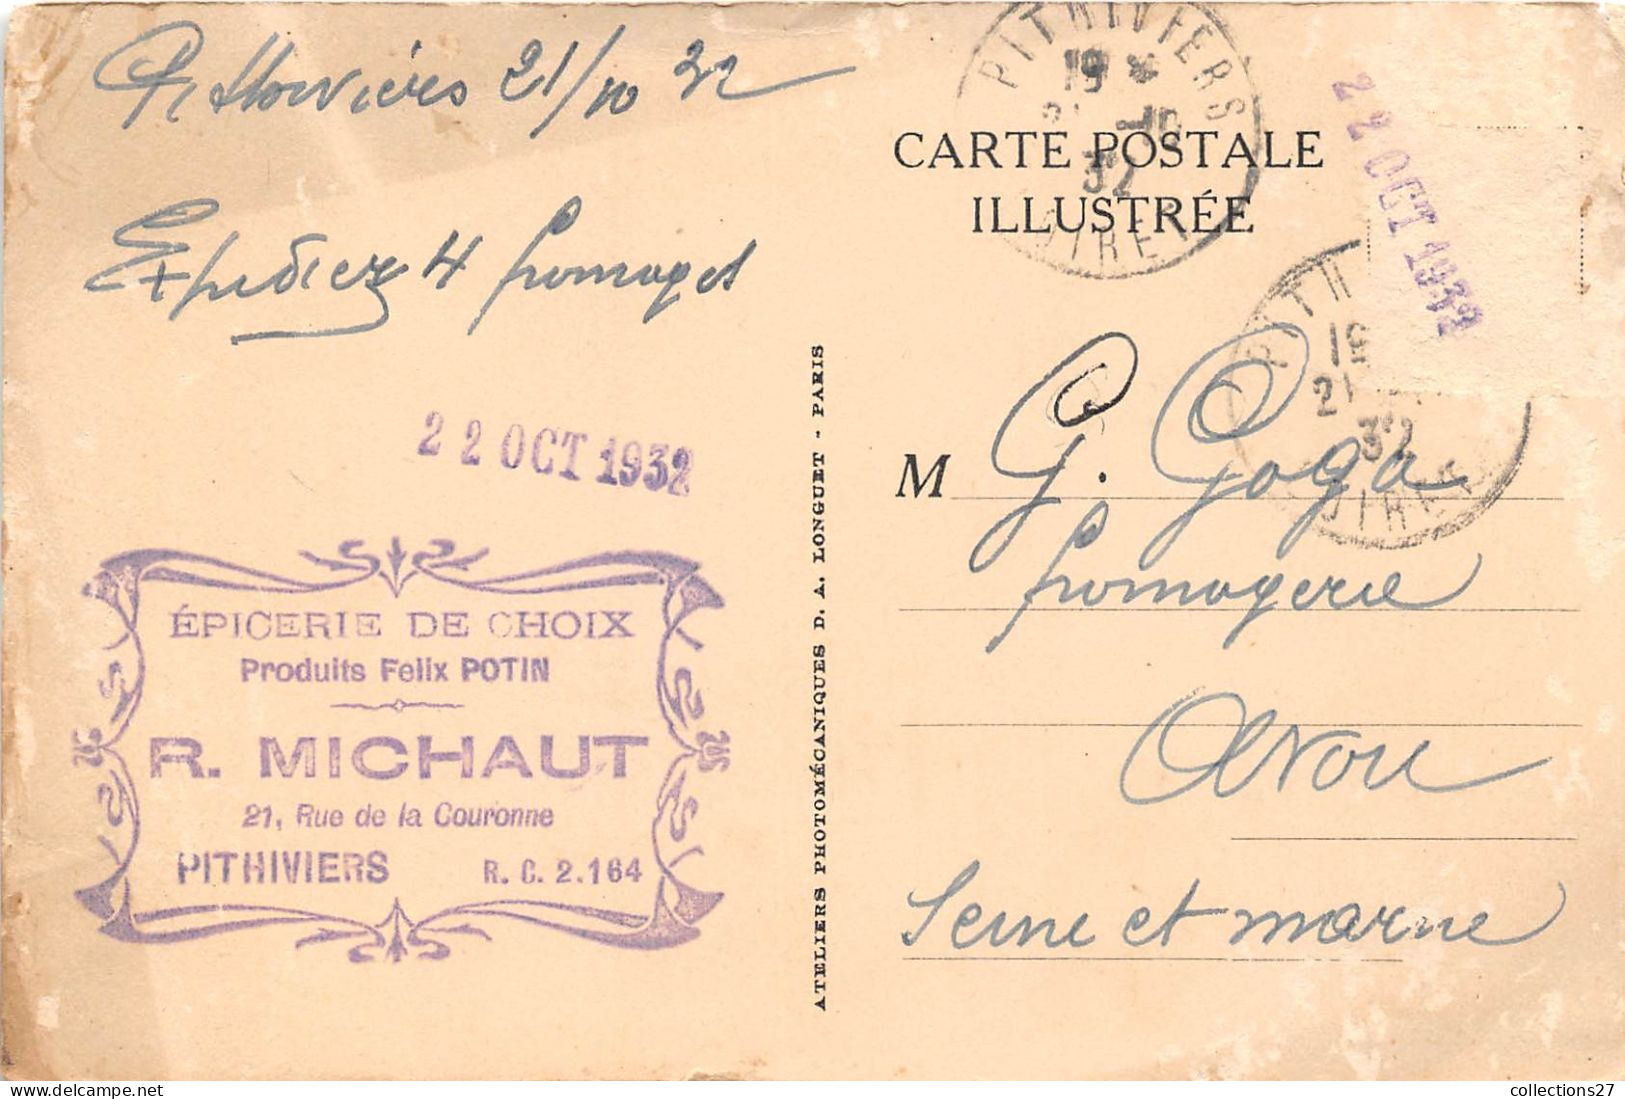 Pithiviers 21/10 32
Expediez 4 fromages
22 OCT 1932
ÉPICERIE DE CHOIX
Produits Felix POTIN
R. MICHAUT
21, Rue de la Couronne
PITHIVIERS R. C. 2.164
ATELIERS PHOTOMÉCANIQUES D. A. LONGUET - PARIS
PITHIVIERS
19
-10
32
LOIRET
CARTE POSTALE
ILLUSTRÉE
22 OCT 1932
PITH
19
21
32
OIRET
M G. Goga
fromagerie
Avon
Seine et marne
collections27